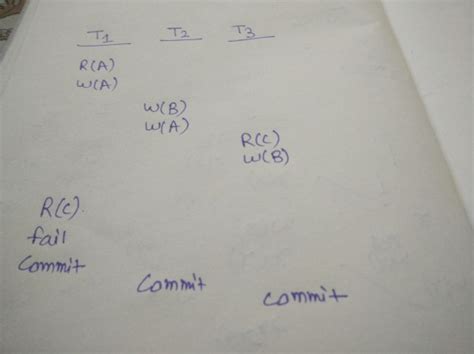 T1 T2 T3
R(A)
W(A)
W(B)
W(A)
R(C)
W(B)
R(C)
fail
Commit
Commit
Commit